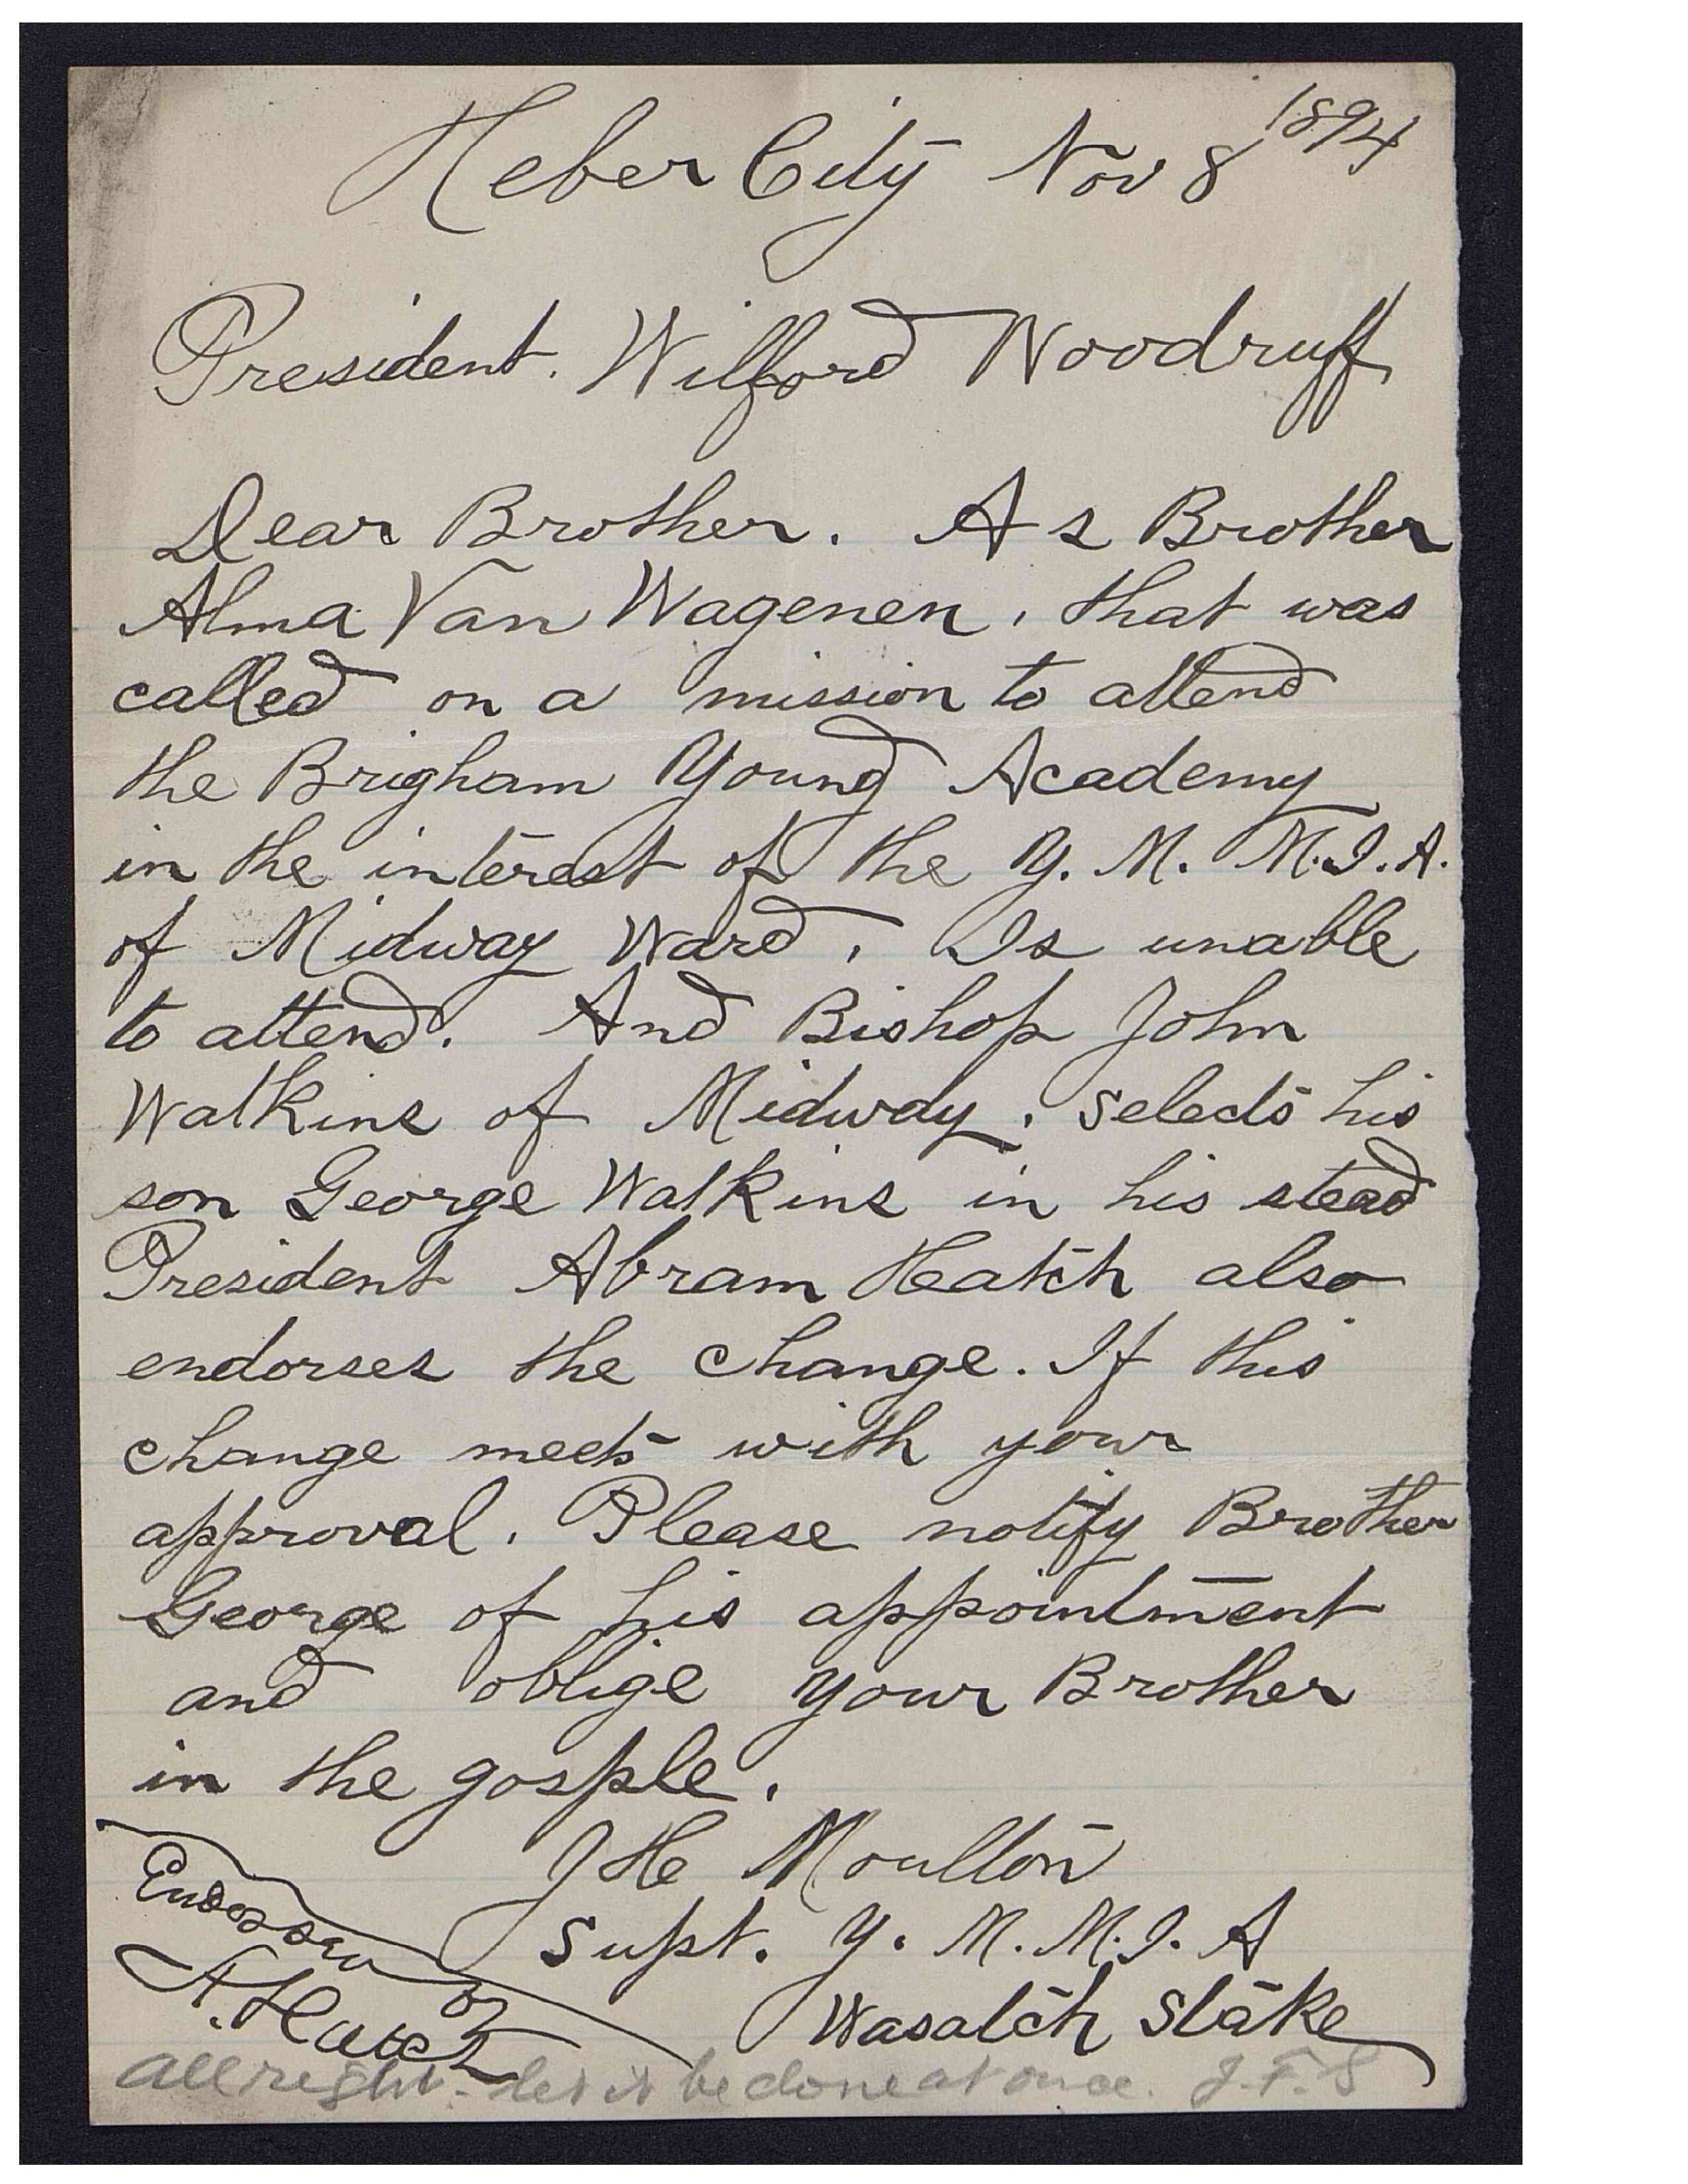 Heber City Nov 8 1894
President. Wilford Woodruff
Dear Brother. As Brother
Alma Van Wagenen, that was
called on a mission to attend
the Brigham Young Academy
in the interest of the Y. M. M.I.A.
of Midway Ward, Is unable
to attend. And Bishop John
Watkins of Midway, selects his
son George Watkins in his stead
President Abram Hatch also
endorses the change. If this
change meets with your
approval. Please notify Brother
George of his appointment
and oblige your Brother
in the gosple.
J H Moulton
Supt. Y. M. M. I. A
Wasatch Stake
Endorsed by
A. Hatch
All right - let it be done at once. J.F.S